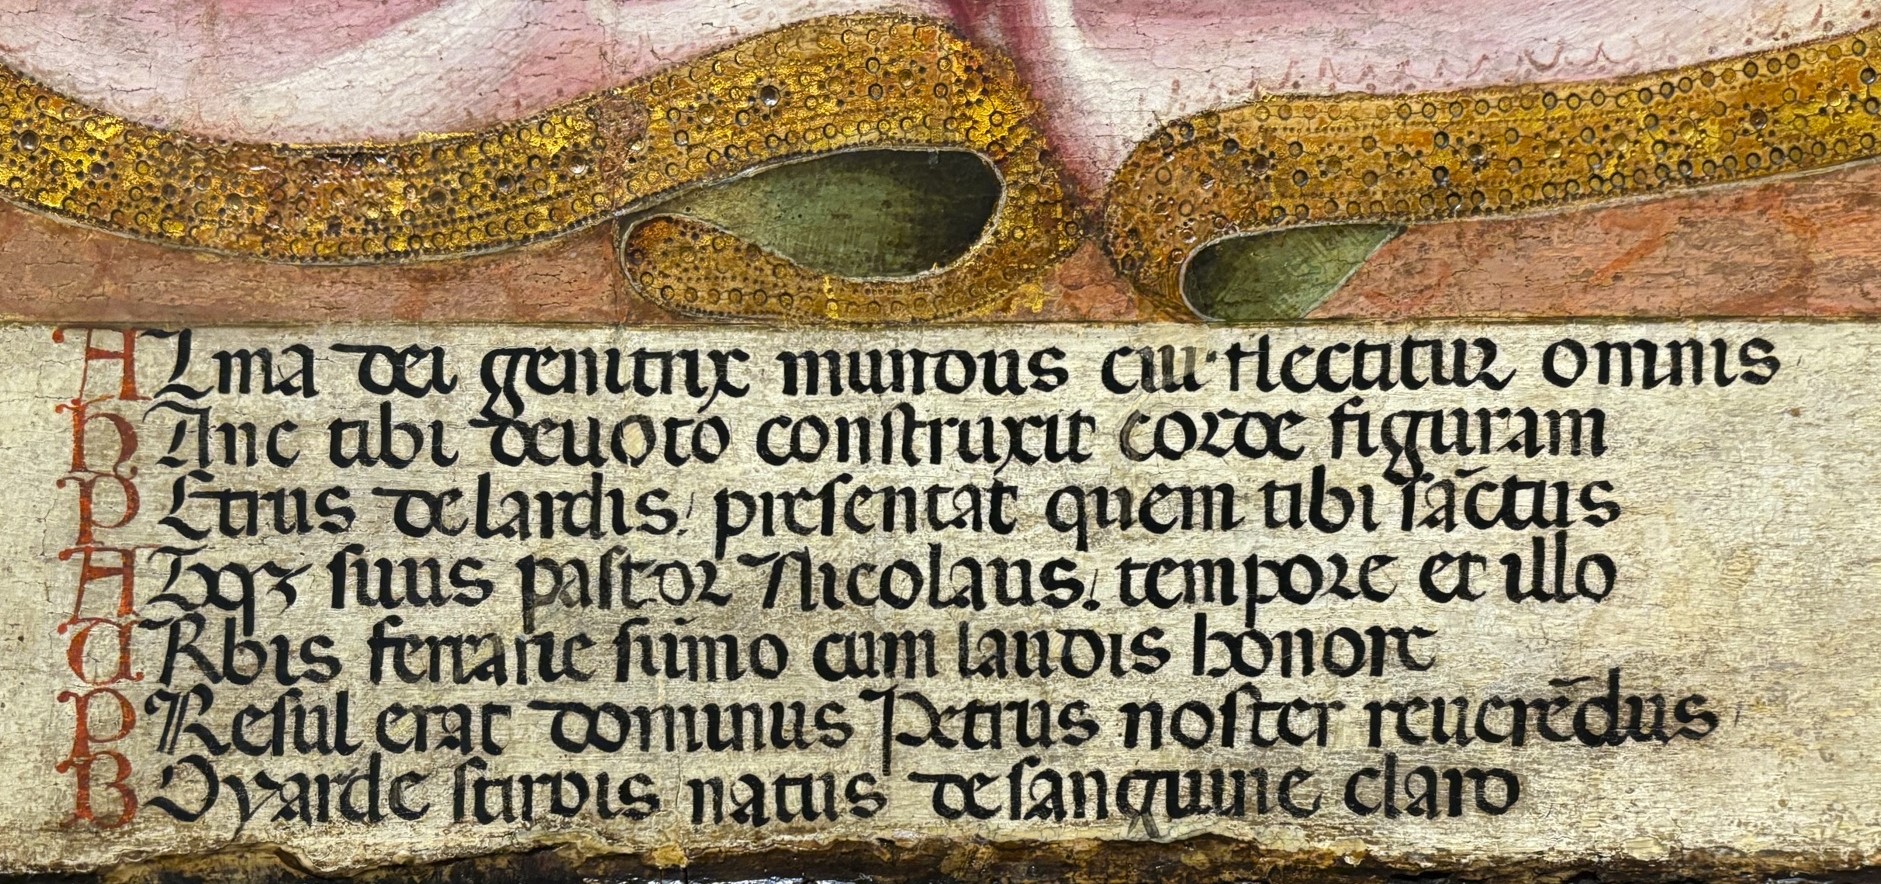 ALma dei genitrix mundus cui flectitur omnis
hAnc tibi deuoto construxit corde figuram
PEtrus de lardis / presentat quem tibi sāctus
ATqꝫ suus pastor Nicolaus / tempore et illo
URbis ferrarie sūmo cum laudis honore
PResul erat dominus Petrus noster reuerēdus
BOyarde stirpis natus de sanguine claro